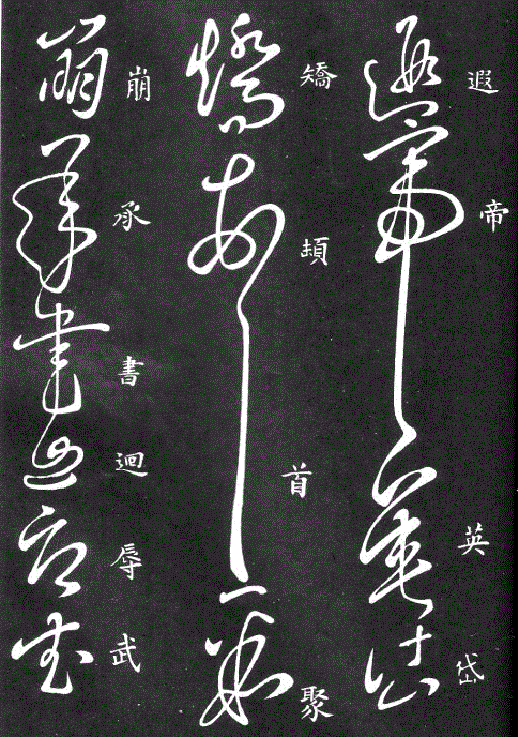 遐帝英岱
矯首聚
崩承書迴辱武